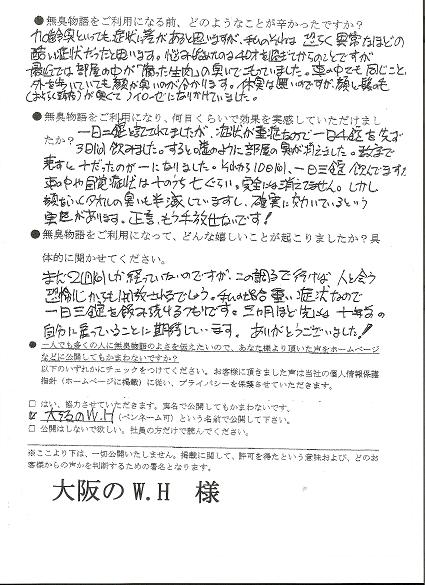 ●無臭物語をご利用になる前、どのようなことが辛かったですか？
加齢臭といっても症状に差があると思いますが、私のそれは恐らく異常なほどの
酷い症状だったと思います。悩み始めたのは40才を過ぎてからのことですが
最近では部屋の中が"腐った生肉"の臭いでこもっていました。車の中でも同じこと。
外を歩いていても顔が臭いのが分かります。体臭は無いのですが、顔と髪の毛
が臭くてノイローゼになりかけていました。
●無臭物語をご利用になり、何日くらいで効果を実感していただけまし
たか？
一日二錠と記されてましたが、症状が重症なので一日4錠を先ず
3日間飲みました。すると嘘のように部屋の臭が消えました。数字で
表すと十だったのが一になりました。それから10日間、一日三錠飲んでますが
車の中や自覚症状は十のうち七ぐらい。完全には消えてません。しかし
枕などタオルの臭いも半減していますし、確実に効いているという
実感があります。正直、もう手放せないです！
●無臭物語をご利用になって、どんな嬉しいことが起こりましたか？具
体的に聞かせてください。
まだ2週間しか経っていないのですが、この調子で行けば、人と会う
恐怖心からも解放されるでしょう。私の場合重い症状なので
一日三錠を飲み続けるつもりです。三カ月ほど先には十年前の
自分に戻っていることに期待しています。ありがとうございました！
●一人でも多くの人に無臭物語のよさを伝えたいので、あなた様より頂いた声をホームページ
などに公開してもかまわないですか？
以下のいずれかにチェックをつけてください。お客様に頂きました声は当社の個人情報保護
指針（ホームページに掲載）に従い、プライバシーを保護させていただきます。
□ はい、協力させていただきます。実名で公開してもかまわないです。
☑ 大阪のW.H（ペンネーム可）という名前で公開して下さい。
□ 公開はしないで欲しい。社員の方だけで読んでください。
※ここより下は、一切公開いたしません。掲載に関して、許可を得たという意味および、どのお
客様からの声かを判断するための署名となります。
大阪のW.H 様